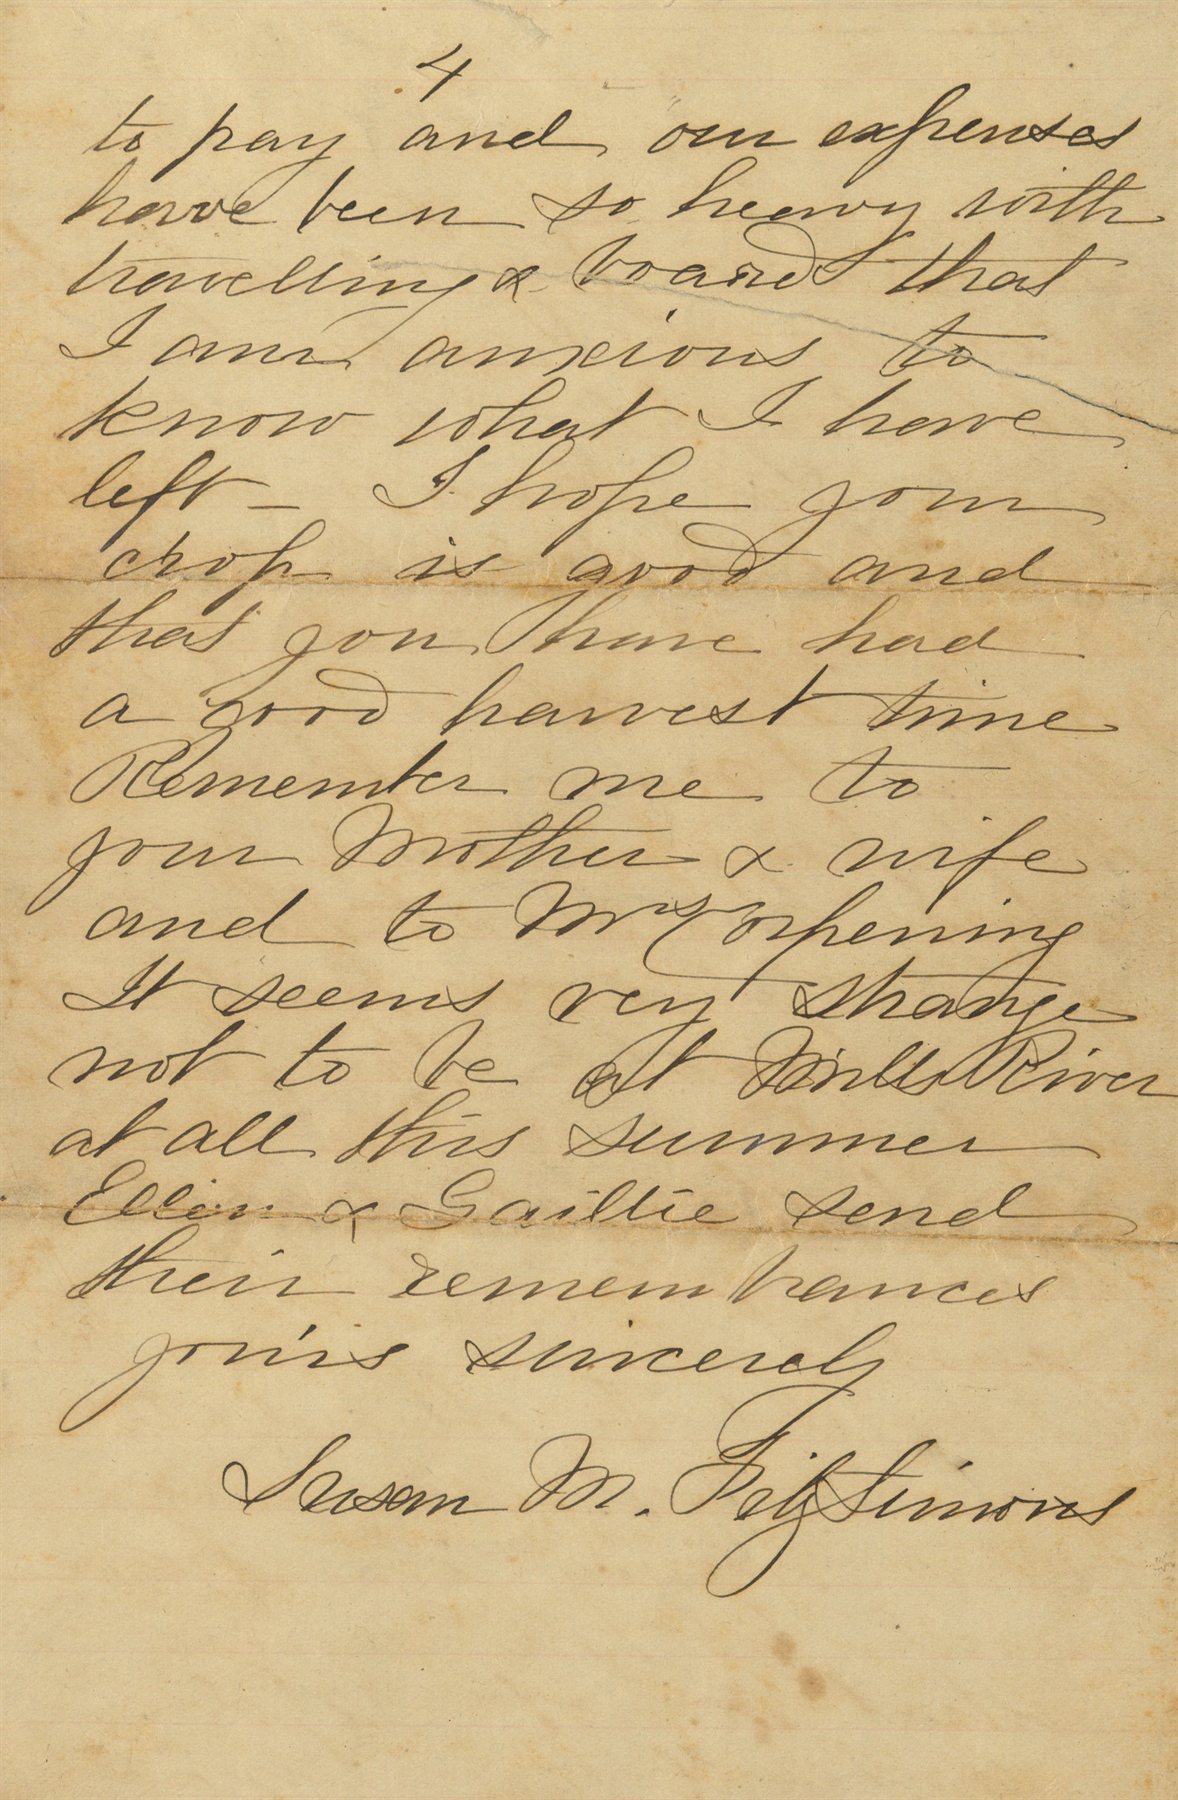 4
to pay and our expenses
have been so heavy with
travelling & board that
I am anxious to
know what I have
left – I hope your
crop is good and
that you have had
a good harvest time
Remember me to
your Mother & wife
and to Mrs Corpening
It seems very strange
not to be at Mills River
at all this summer
Ellen & Gaillie send
their remembrances
yours sincerely
Susan M. FitzSimons